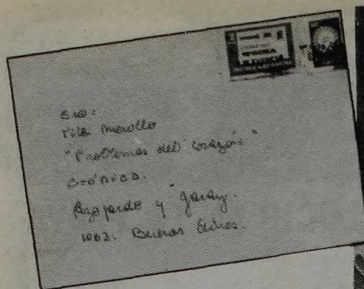 Tita Merello
"Problemas del corazón"
Crónica.
Azopardo y Garay.
Buenos Aires.